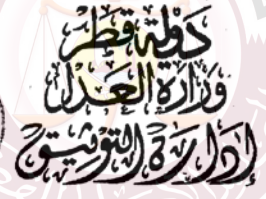 دَوْلَة قَطَر
وَزَارَة العَدْل
إدَارَة التَّوثِيق